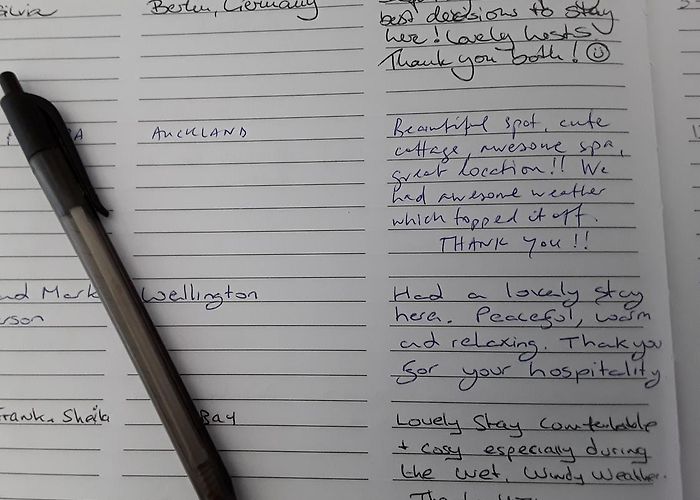 Silvia Berlin, Germany
best decisions to stay
here! Lovely hosts!
Thank you both! ☺
AUCKLAND Beautiful spot, cute
cottage, awesome spa,
great location!! We
had awesome weather
which topped it off.
THANK YOU!!
nd Mark Wellington Had a lovely stay
erson here. Peaceful, warm
ad relaxing. Thak you
for your hospitality
Frank & Sheila Bay Lovely Stay comfortable
+ cosy especially during
the wet, windy weather.